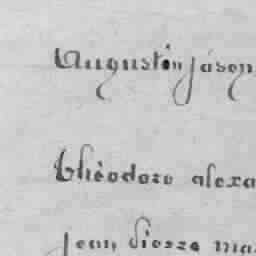 Augustin jáson
thèodore alexa
jean pierre ma